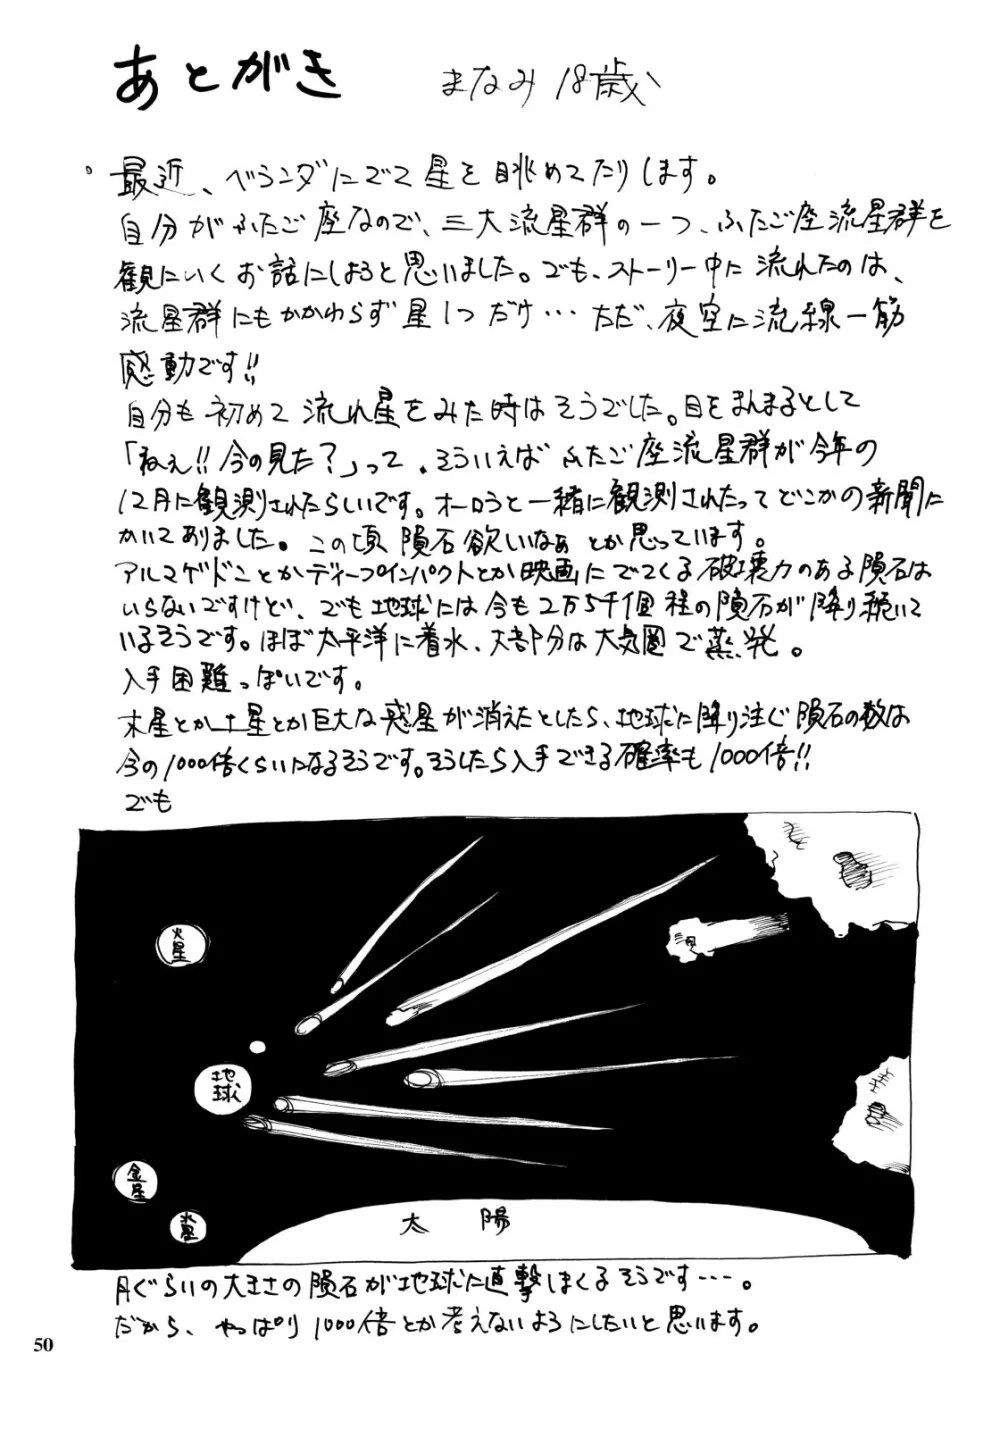 あとがき まなみ 18歳
最近、ベランダにでて星を眺めてたりします。
自分がふたご座なので、三大流星群の一つ、ふたご座流星群を
観にいくお話にしようと思いました。でも、ストーリー中に流れたのは、
流星群にもかかわらず星1つだけ…ただ、夜空に流線一筋
感動です!!
自分も初めて流れ星をみた時はそうでした。目をまんまるとして
「ねぇ!!今の見た?」って。そういえばふたご座流星群が今年の
12月に観測されたらしいです。オーロラと一緒に観測されたってどこかの新聞に
かいてありました。この頃隕石欲しいなぁとか思っています。
アルマゲドンとかディープインパクトとか映画にでてくる破壊力のある隕石は
いらないですけど、でも地球には今も2万5千個程の隕石が降り続いて
いるそうです。ほぼ太平洋に着水、大部分は大気圏で蒸発。
入手困難っぽいです。
木星とか土星とか巨大な惑星が消えたとしたら、地球に降り注ぐ隕石の数は
今の1000倍くらいになるそうです。そうしたら入手できる確率も1000倍!!
でも
火星
地球
金星
水星
太陽
月ぐらいの大きさの隕石が地球に直撃しまくるそうです…。
だから、やっぱり1000倍とか考えないようにしたいと思います。
50